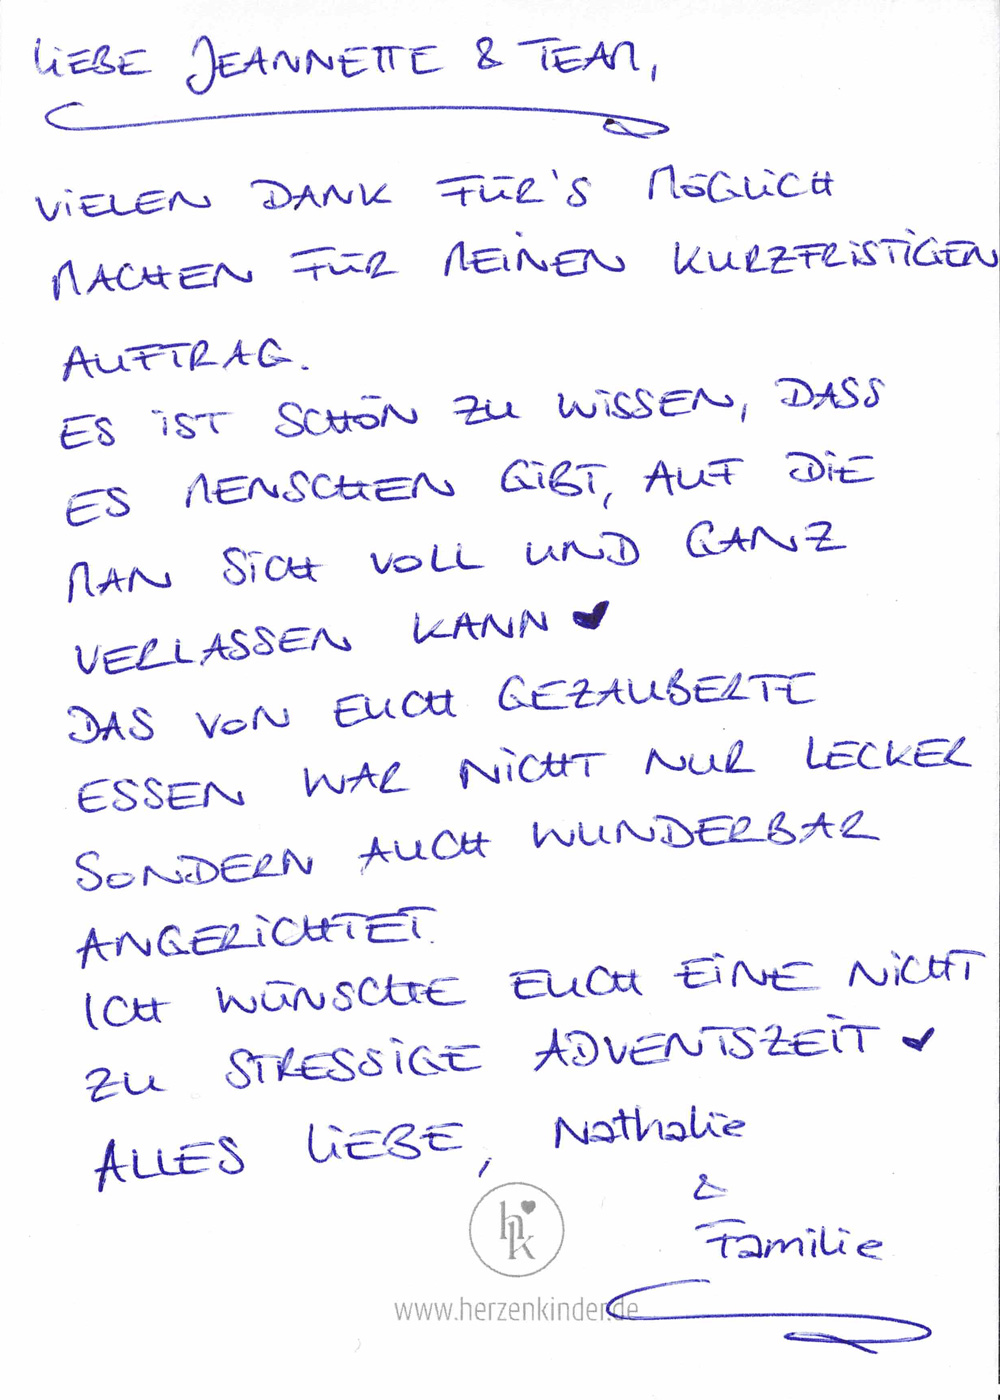 LIEBE JEANNETTE & TEAM,
VIELEN DANK FÜR'S MÖGLICH
MACHEN FÜR MEINEN KURZFRISTIGEN
AUFTRAG.
ES IST SCHÖN ZU WISSEN, DASS
ES MENSCHEN GIBT, AUF DIE
MAN SICH VOLL UND GANZ
VERLASSEN KANN ♥
DAS VON EUCH GEZAUBERTE
ESSEN WAR NICHT NUR LECKER
SONDERN AUCH WUNDERBAR
ANGERICHTET.
ICH WÜNSCHE EUCH EINE NICHT
ZU STRESSIGE ADVENTSZEIT ♥
ALLES LIEBE, Nathalie
&
Familie
hk
www.herzenkinder.de